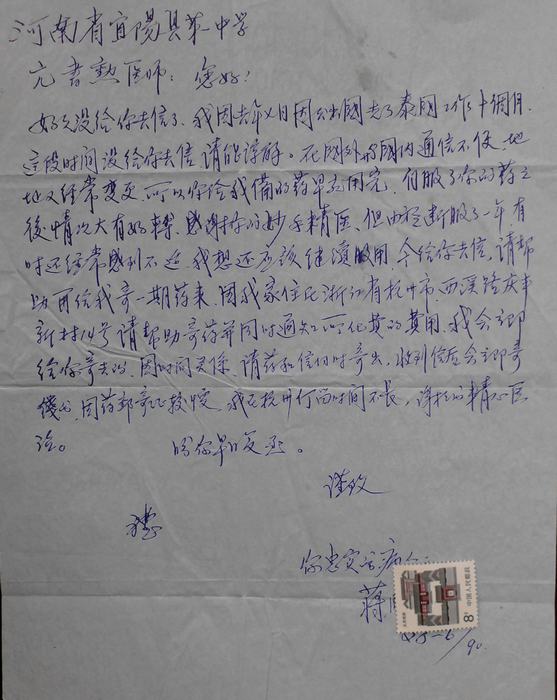 河南省宜陽县第一中学
亢書勲医师：您好！
好久没给你去信了、我因去年 月因公出國去了泰國工作十個月
这段时间没给你去信请能谅解。在國外和國内通信不便、地
地又经常变更、所以你给我備的药早完用完、但服了你的药之
後情况大有好轉、感谢你的妙手精医、但中经断服了一年有
时还经常感到不适、我想还应该继續服用、今给你去信、请帮
助再给我寄一期药来、因我家住在浙江省杭州市、西溪路庆丰
新村14号 请帮助寄药并同时通知所化费的费用、我会立即
给你寄去的、因时间关係、请药和信同时寄出、收到信后会立即寄
钱出、因药邮寄比较慢、我在杭州停留时间不长、谢 的精心医
治。 盼你早日复函。
谨致
礼
你忠实的病人
蒋
28-6/90.
中国人民邮政
8分